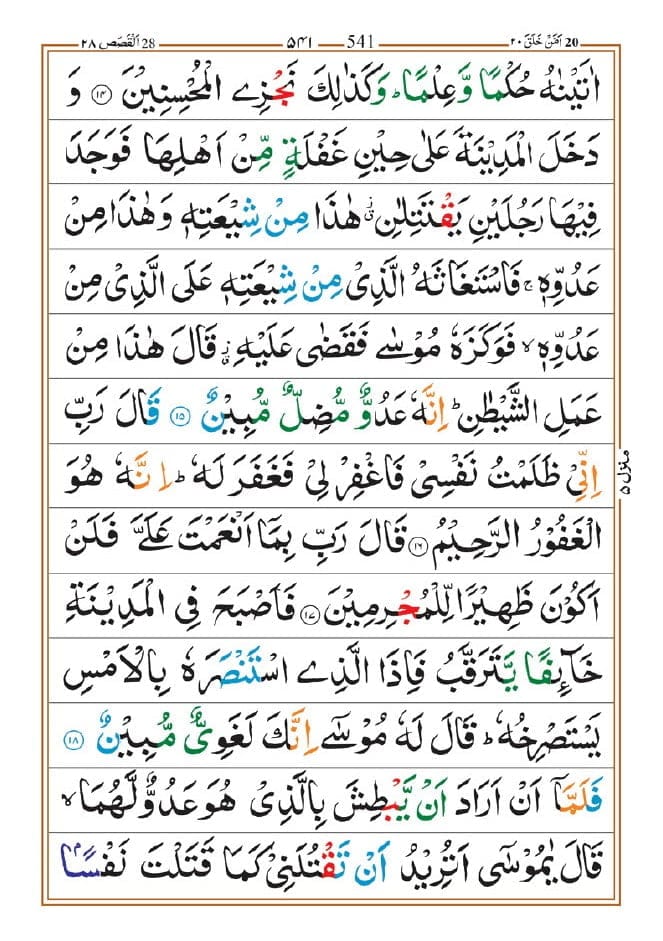 28 اَلْقَصَص ۲۸ — 541 ۵۴۱ — 20 اَمَّنْ خَلَقَ ۲۰
اٰتَيْنٰهُ حُكْمًا وَّعِلْمًا ؕ وَكَذٰلِكَ نَجْزِے الْمُحْسِنِيْنَ ﴿۱۴﴾ وَ
دَخَلَ الْمَدِيْنَةَ عَلٰى حِيْنِ غَفْلَةٍ مِّنْ اَهْلِهَا فَوَجَدَ
فِيْهَا رَجُلَيْنِ يَقْتَتِلٰنِ ؗ هٰذَا مِنْ شِيْعَتِهٖ وَهٰذَا مِنْ
عَدُوِّهٖ ۚ فَاسْتَغَاثَهُ الَّذِىْ مِنْ شِيْعَتِهٖ عَلَى الَّذِىْ مِنْ
عَدُوِّهٖ ۙ فَوَكَزَهٗ مُوْسٰے فَقَضٰى عَلَيْهِ ؗ قَالَ هٰذَا مِنْ
عَمَلِ الشَّيْطٰنِ ؕ اِنَّهٗ عَدُوٌّ مُّضِلٌّ مُّبِيْنٌ ﴿۱۵﴾ قَالَ رَبِّ
اِنِّىْ ظَلَمْتُ نَفْسِىْ فَاغْفِرْ لِىْ فَغَفَرَ لَهٗ ؕ اِنَّهٗ هُوَ
الْغَفُوْرُ الرَّحِيْمُ ﴿۱۶﴾ قَالَ رَبِّ بِمَاۤ اَنْعَمْتَ عَلَےَّ فَلَنْ
اَكُوْنَ ظَهِيْرًا لِّلْمُجْرِمِيْنَ ﴿۱۷﴾ فَاَصْبَحَ فِى الْمَدِيْنَةِ
خَآئِفًا يَّتَرَقَّبُ فَاِذَا الَّذِے اسْتَنْصَرَهٗ بِالْاَمْسِ
يَسْتَصْرِخُهٗ ؕ قَالَ لَهٗ مُوْسٰٓے اِنَّكَ لَغَوِىٌّ مُّبِيْنٌ ﴿۱۸﴾
فَلَمَّاۤ اَنْ اَرَادَ اَنْ يَّبْطِشَ بِالَّذِىْ هُوَ عَدُوٌّ لَّهُمَا ۙ
قَالَ يٰمُوْسٰٓى اَتُرِيْدُ اَنْ تَقْتُلَنِىْ كَمَا قَتَلْتَ نَفْسًاۢ
منزل ۵